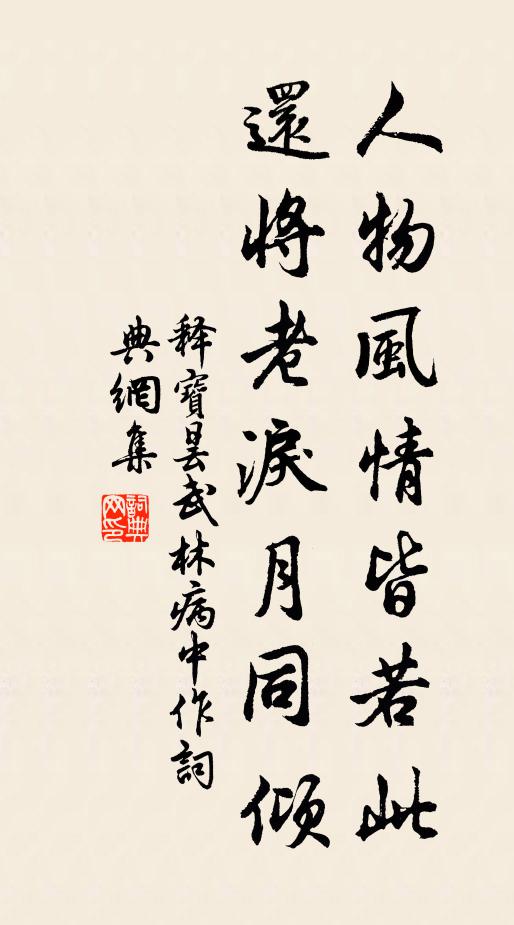 人物風情皆若此
還將老淚月同傾
释寶曇武林病中作詞
典網集
詞典網印